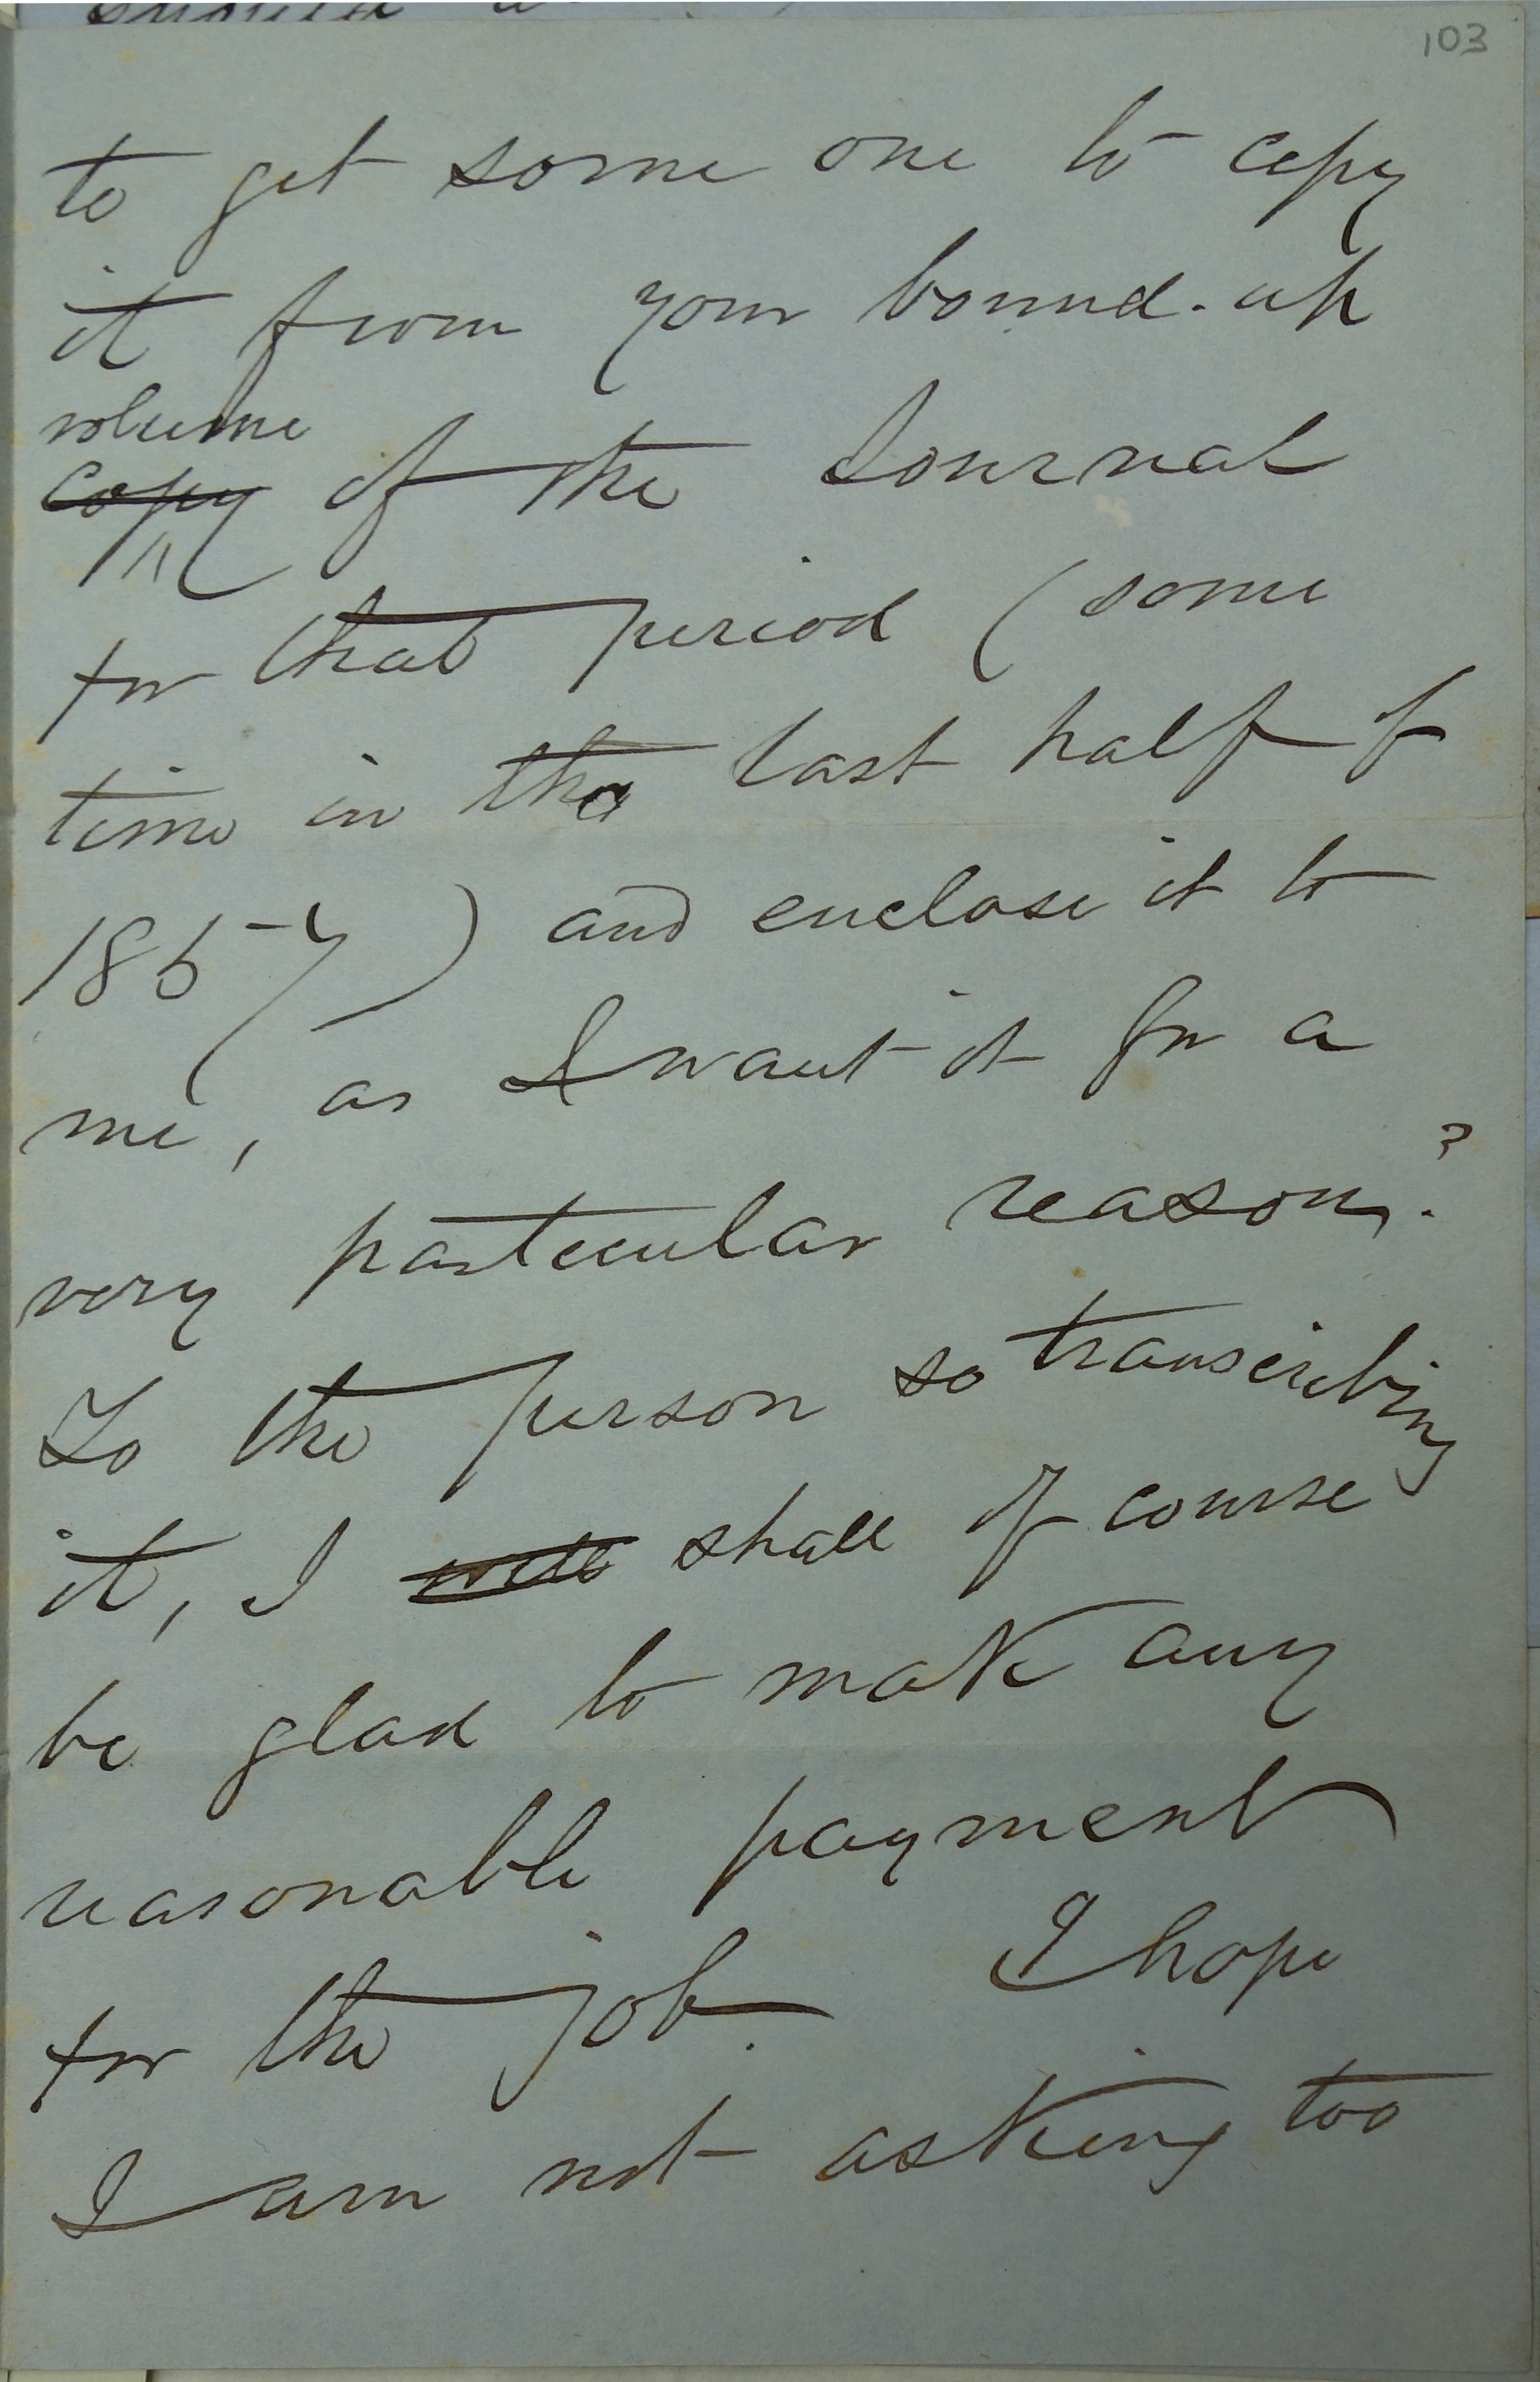 103
to get some one to copy
it from your bound-up
volume
copy of the Journal
for that period (some
time in the last half of
1857) and enclose it to
me, as I want it for a
very particular reason?
To the person so transcribing
it, I will shall of course
be glad to make any
reasonable payment
for the job. I hope
I am not asking too